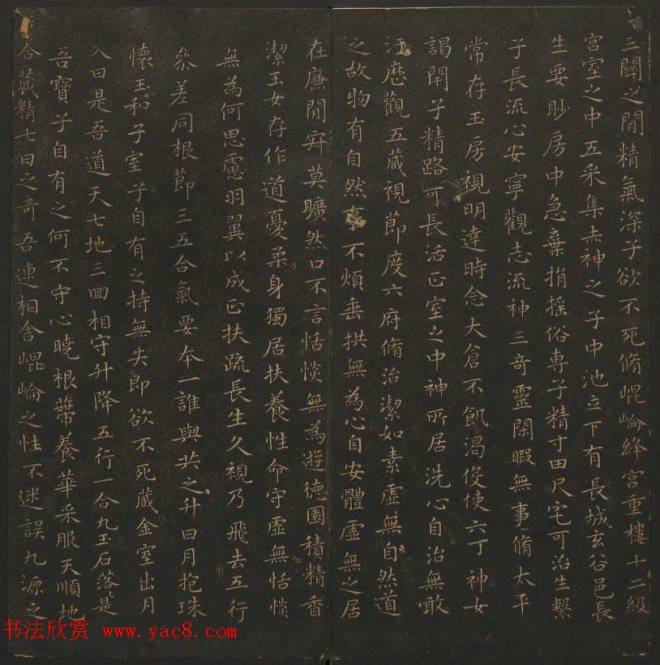 三關之閒精氣深子欲不死脩崐崘絳宮重樓十二級
宮室之中五采集赤神之子中池立下有長城玄谷邑長
生要眇房中急棄捐搖俗專子精寸田尺宅可治生繫
子長流心安寧觀志流神三奇靈閑暇無事脩太平
常存玉房視明達時念大倉不飢渴役使六丁神女
謁閉子精路可長活正室之中神所居洗心自治無敢
汙歷觀五藏視節度六府脩治潔如素虛無自然道
之故物有自然不煩垂拱無為心自安體虛無之居
在廉閒寂莫曠然口不言恬惔無為遊德園積精香
潔玉女存作道憂柔身獨居扶養性命守虛無恬惔
無為何思慮羽翼以成正扶疏長生久視乃飛去五行
參差同根節三五合氣要本一誰與共之升日月抱珠
懷玉和子室子自有之持無失即欲不死藏金室出月
入日是吾道天七地三回相守升降五行一合九玉石落是
吾寶子自有之何不守心曉根蔕養華采服天順地
合藏精七日之奇吾連相合崐崘之性不迷誤九源之
书法欣赏 www.yac8.com